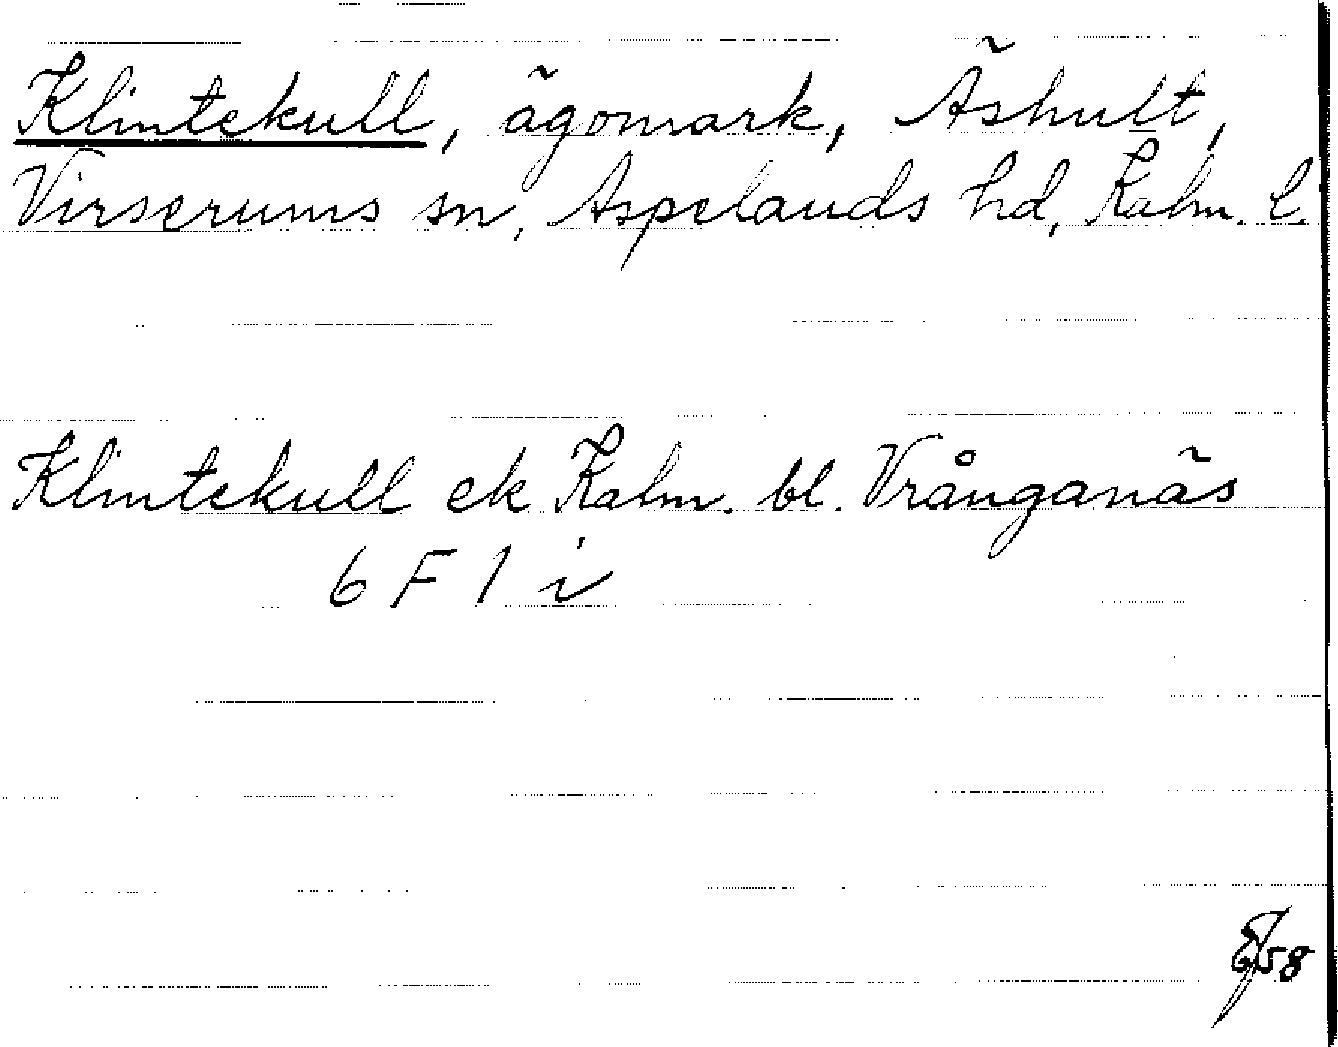 Klintekull, ägomark, Äshult,
Virserums sn, Aspelands hd, Kalm. l.
Klintekull ek Kalm. bl. Vrånganäs
6 F 1 i